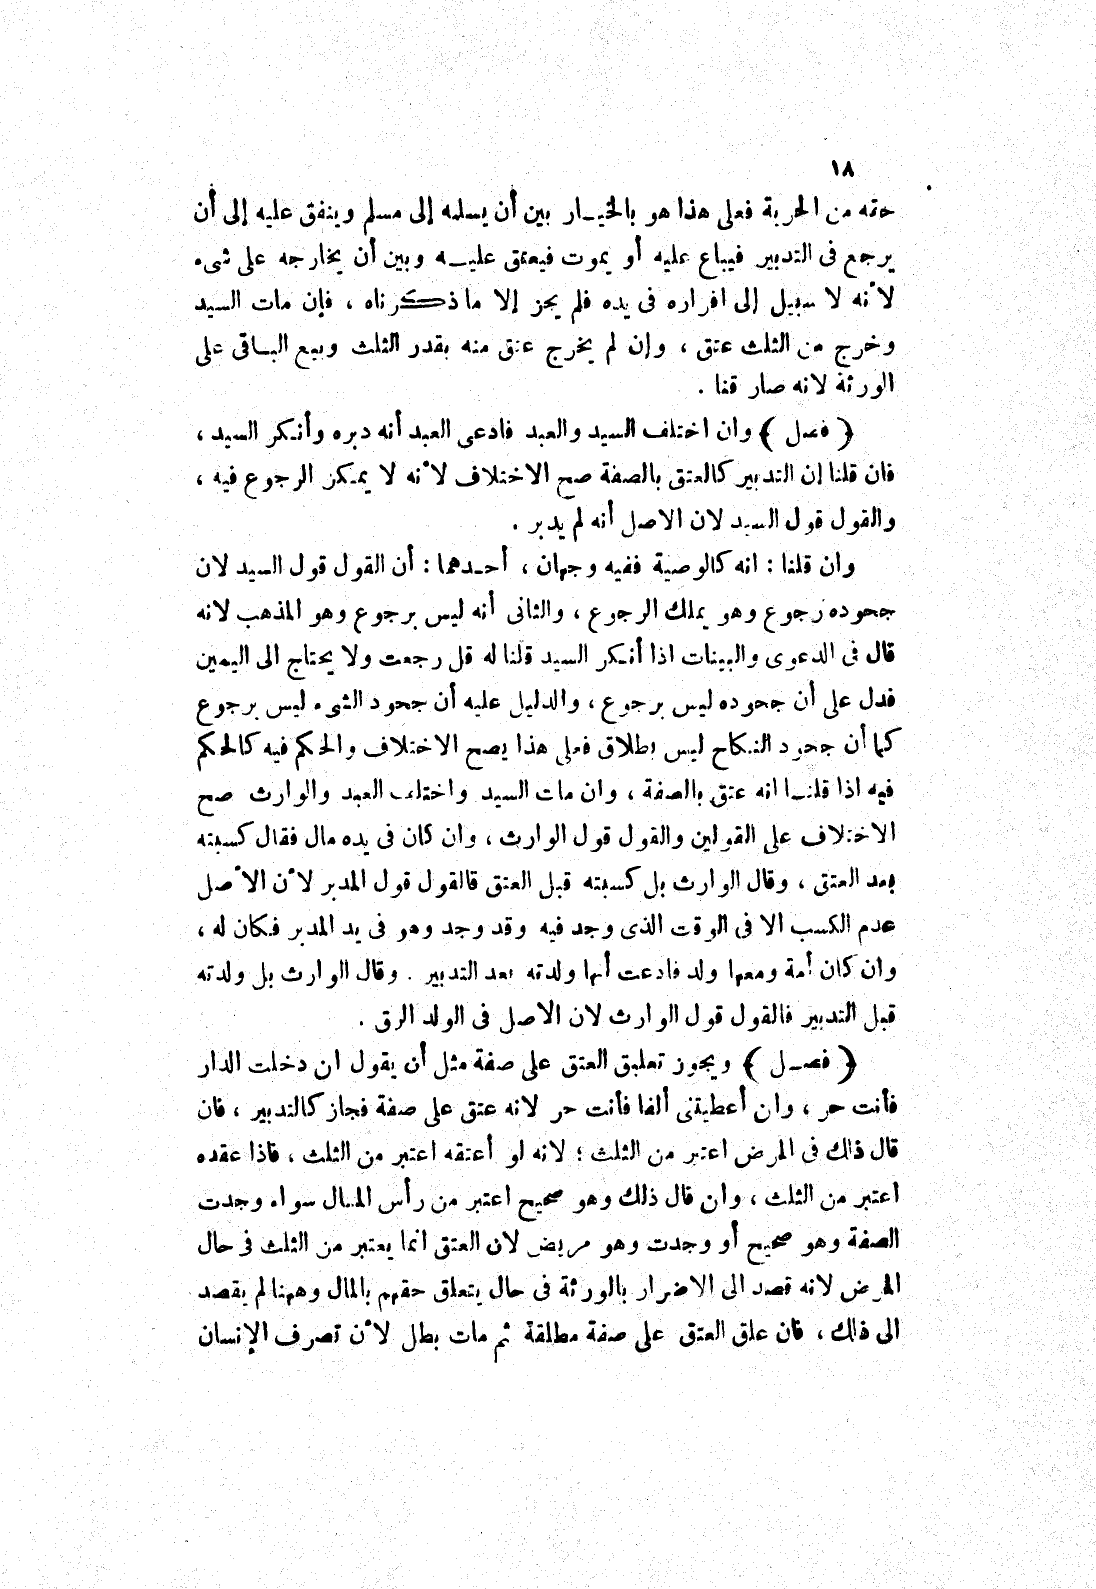 ١٨
حقه من الحرية فعلى هذا هو بالخيار بين أن يسلمه إلى مسلم وينفق عليه إلى أن
يرجع فى التدبير فيباع عليه أو يموت فيعتق عليه وبين أن يخارجه على شىء
لأنه لا سبيل إلى اقراره فى يده فلم يجز إلا ما ذكرناه ، فإن مات السيد
وخرج من الثلث عتق ، وإن لم يخرج عتق منه بقدر الثلث وبيع الباقى على
الورثة لانه صار قنا .
( فصل ) وان اختلف السيد والعبد فادعى العبد أنه دبره وأنكر السيد ،
فان قلنا إن التدبير كالعتق بالصفة صح الاختلاف لأنه لا يمكن الرجوع فيه ،
والقول قول السيد لان الاصل أنه لم يدبر .
وان قلنا : انه كالوصية ففيه وجهان ، أحدهما : أن القول قول السيد لان
جحوده رجوع وهو يملك الرجوع ، والثانى أنه ليس برجوع وهو المذهب لانه
قال فى الدعوى والبينات اذا أنكر السيد قلنا له قل رجعت ولا يحتاج الى اليمين
فدل على أن جحوده ليس برجوع ، والدليل عليه أن جحود الشىء ليس برجوع
كما أن جحود النكاح ليس بطلاق فعلى هذا يصح الاختلاف والحكم فيه كالحكم
فيه اذا قلنا انه عتق بالصفة ، وان مات السيد واختلف العبد والوارث صح
الاختلاف على القولين والقول قول الوارث ، وان كان فى يده مال فقال كسبته
بعد العتق ، وقال الوارث بل كسبته قبل العتق قالقول قول المدبر لأن الأصل
عدم الكسب الا فى الوقت الذى وجد فيه وقد وجد وهو فى يد المدبر فكان له ،
وان كان أمة ومعها ولد فادعت أنها ولدته بعد التدبير . وقال الوارث بل ولدته
قبل التدبير فالقول قول الوارث لان الاصل فى الولد الرق .
( فصل ) ويجوز تعليق العتق على صفة مثل أن يقول ان دخلت الدار
فأنت حر ، وان أعطيتنى ألفا فأنت حر لانه عتق على صفة فجاز كالتدبير ، فان
قال ذلك فى المرض اعتبر من الثلث ؛ لانه لو أعتقه اعتبر من الثلث ، فاذا عقده
اعتبر من الثلث ، وان قال ذلك وهو صحيح اعتبر من رأس المال سواء وجدت
الصفة وهو صحيح أو وجدت وهو مريض لان العتق انما يعتبر من الثلث فى حال
المرض لانه قصد الى الاضرار بالورثة فى حال يتعلق حقهم بالمال وههنا لم يقصد
الى ذلك ، فان علق العتق على صفة مطلقة ثم مات بطل لأن تصرف الإنسان